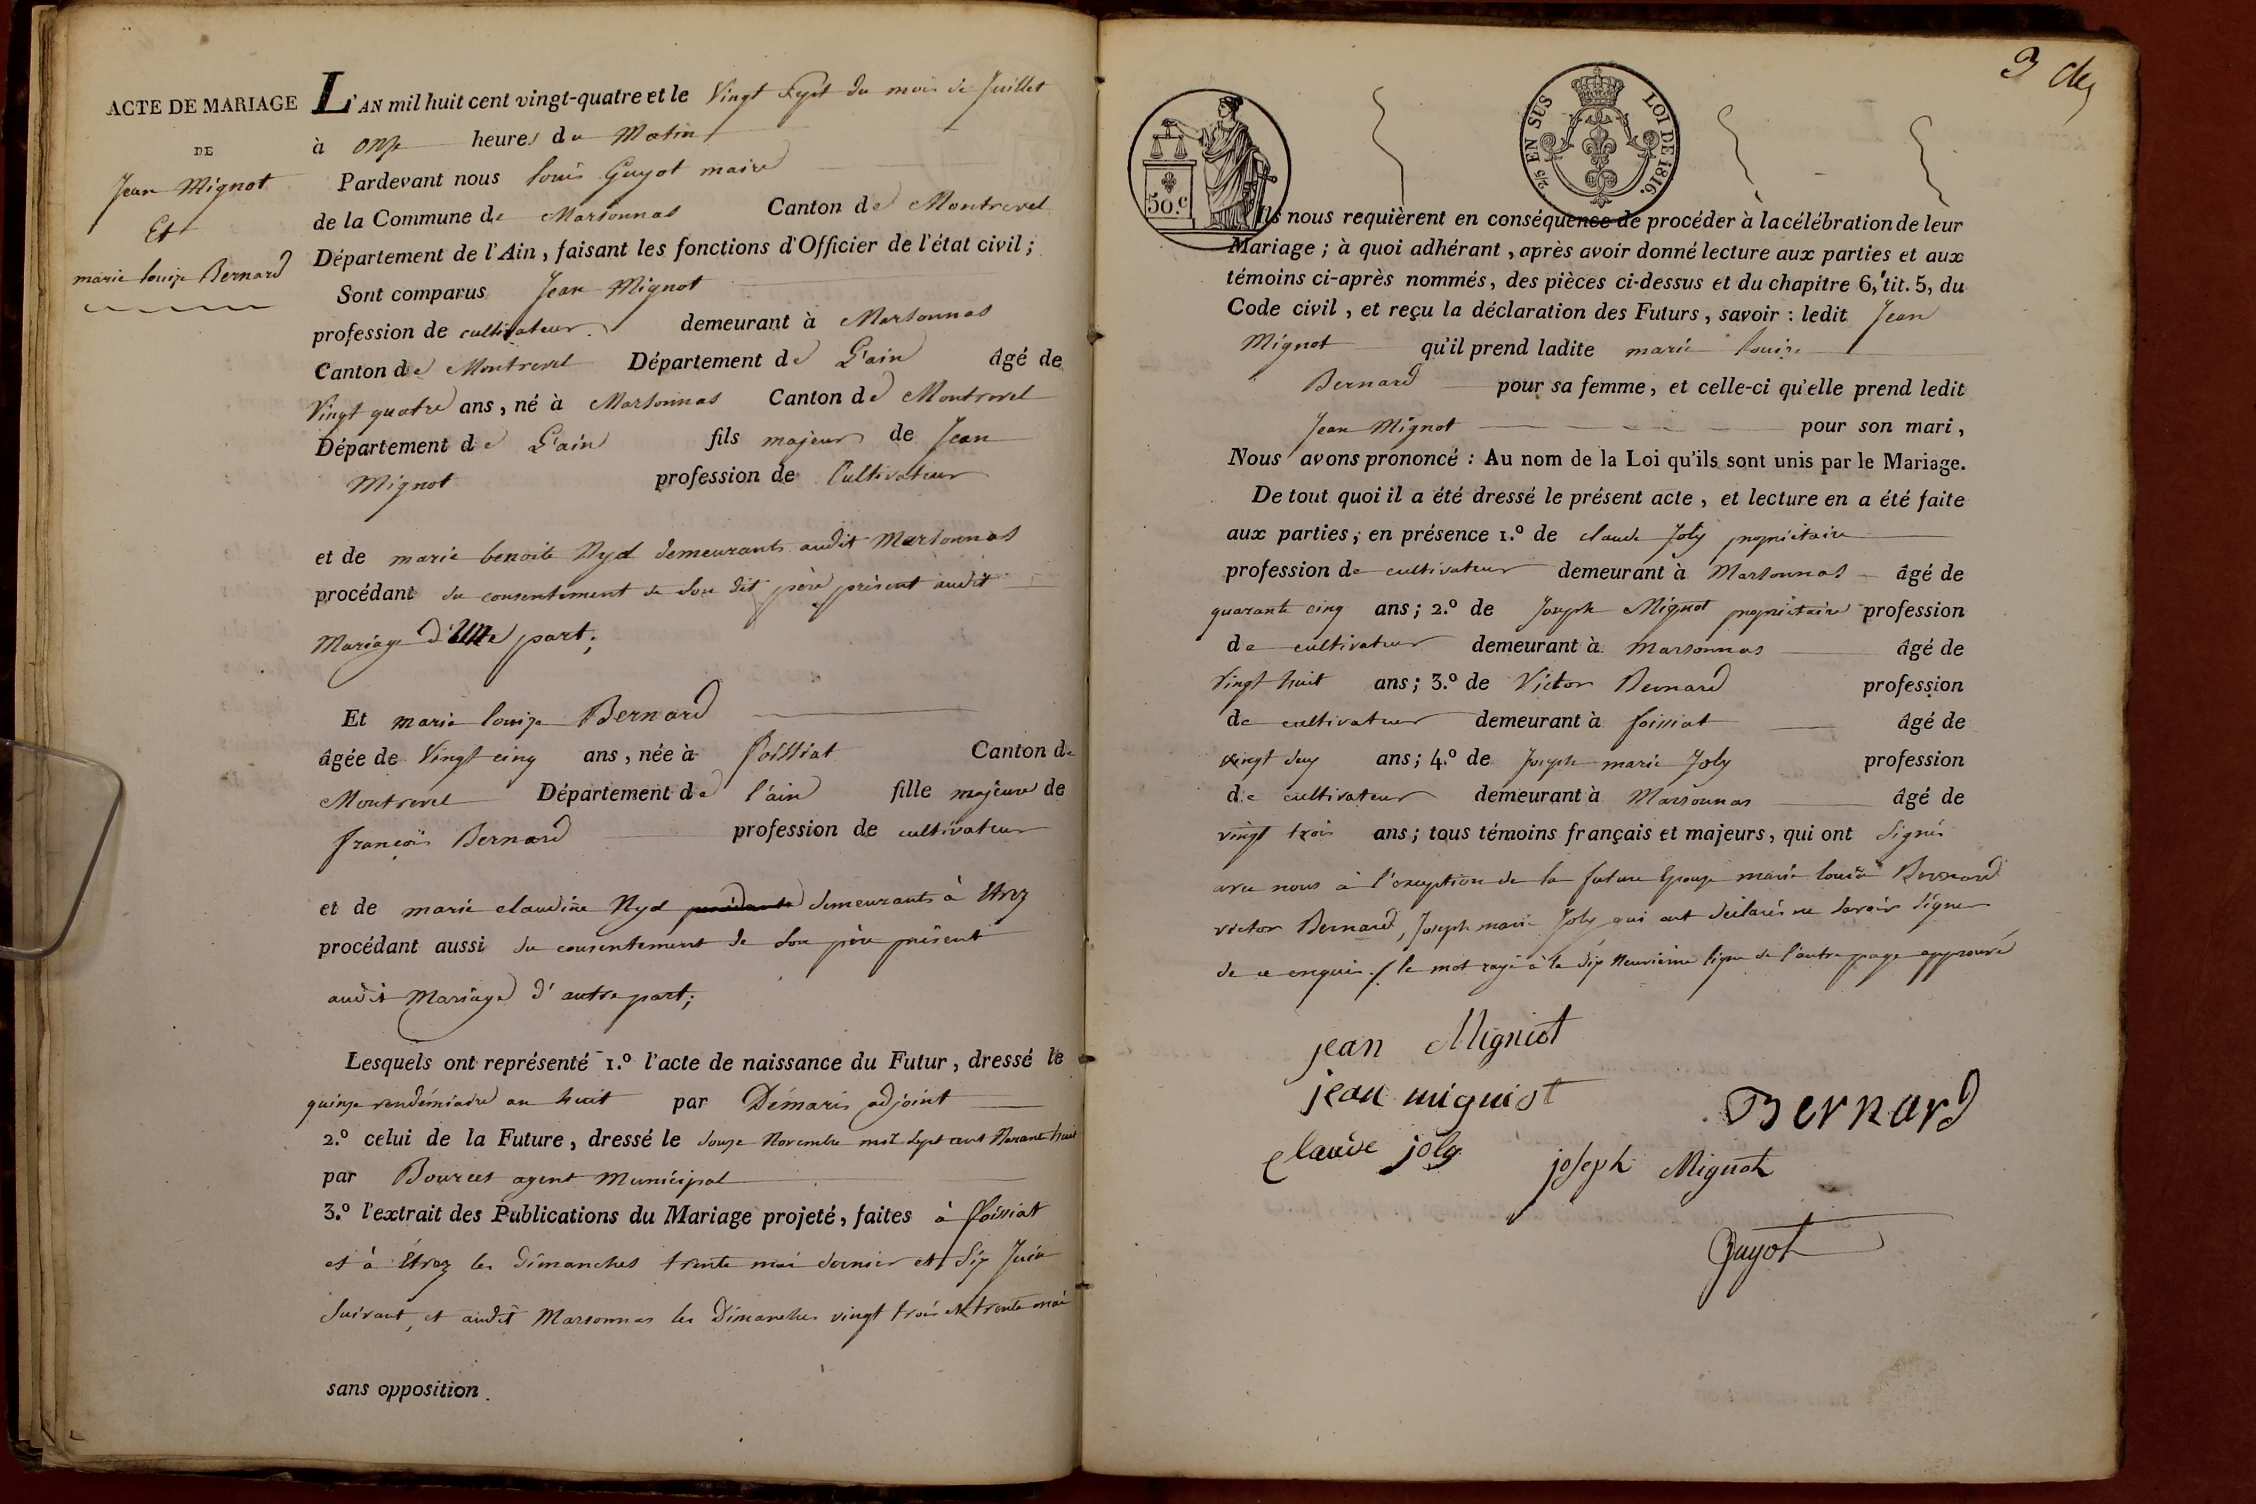 ACTE DE MARIAGE
DE
Jean Mignot
Et
marie louise Bernard
L'AN mil huit cent vingt-quatre et le Vingt Sept du mois de Juillet
à onze heures du Matin
Pardevant nous louis Guyot maire
de la Commune de Marsonnas Canton de Montrevel
Département de l'Ain, faisant les fonctions d'Officier de l'état civil;
Sont comparus Jean Mignot
profession de cultivateur demeurant à Marsonnas
Canton de Montrevel Département de L'ain âgé de
Vingt quatre ans, né à Marsonnas Canton de Montrevel
Département de L'ain fils majeur de Jean
Mignot profession de Cultivateur
et de marie benoite Nyd demeurants audit Marsonnas
procédant du consentement de son dit père présent audit
Mariage d'une part;
Et marie louise Bernard
âgée de Vingt cinq ans, née à foissiat Canton de
Montrevel Département de l'ain fille majeure de
françois Bernard profession de cultivateur
et de marie claudine Nyd demeurants à Etrez
procédant aussi du consentement de son père présent
audit Mariage d'autre part;
Lesquels ont représenté 1.º l'acte de naissance du Futur, dressé le
quinze vendémiaire an huit par Démaris adjoint
2.º celui de la Future, dressé le douze Novembre mil sept cent Nonante huit
par agent Municipal
3.º l'extrait des Publications du Mariage projeté, faites à foissiat
et à Etrez les Dimanches trente mai dernier et Six Juin
Suivant, et audit Marsonnas les Dimanches vingt trois et trente mai
sans opposition.
3
50.c
2/5 EN SUS
LOI DE 1816.
Ils nous requièrent en conséquence de procéder à la célébration de leur
Mariage; à quoi adhérant, après avoir donné lecture aux parties et aux
témoins ci-après nommés, des pièces ci-dessus et du chapitre 6, tit. 5, du
Code civil, et reçu la déclaration des Futurs, savoir: ledit Jean
Mignot qu'il prend ladite marie louise
Bernard pour sa femme, et celle-ci qu'elle prend ledit
Jean Mignot pour son mari,
Nous avons prononcé: Au nom de la Loi qu'ils sont unis par le Mariage.
De tout quoi il a été dressé le présent acte, et lecture en a été faite
aux parties; en présence 1.º de claude Joly propriétaire
profession de cultivateur demeurant à Marsonnas âgé de
quarante cinq ans; 2.º de Joseph Mignot propriétaire profession
de cultivateur demeurant à Marsonnas âgé de
Vingt huit ans; 3.º de Victor Bernard profession
de cultivateur demeurant à foissiat âgé de
vingt deux ans; 4.º de Joseph marie Joly profession
de cultivateur demeurant à Marsonnas âgé de
vingt trois ans; tous témoins français et majeurs, qui ont Signés
avec nous à l'exception de la future Epouse marie louise Bernard
victor Bernard, Joseph marie Joly qui ont déclarés ne Savoir Signer
de ce enquis ./ le mot rayé à la dix Neuvième ligne de l'autre page approuvé
jean Migniot
jean migniot
Bernard
claude joly
joseph Mignot
Guyot